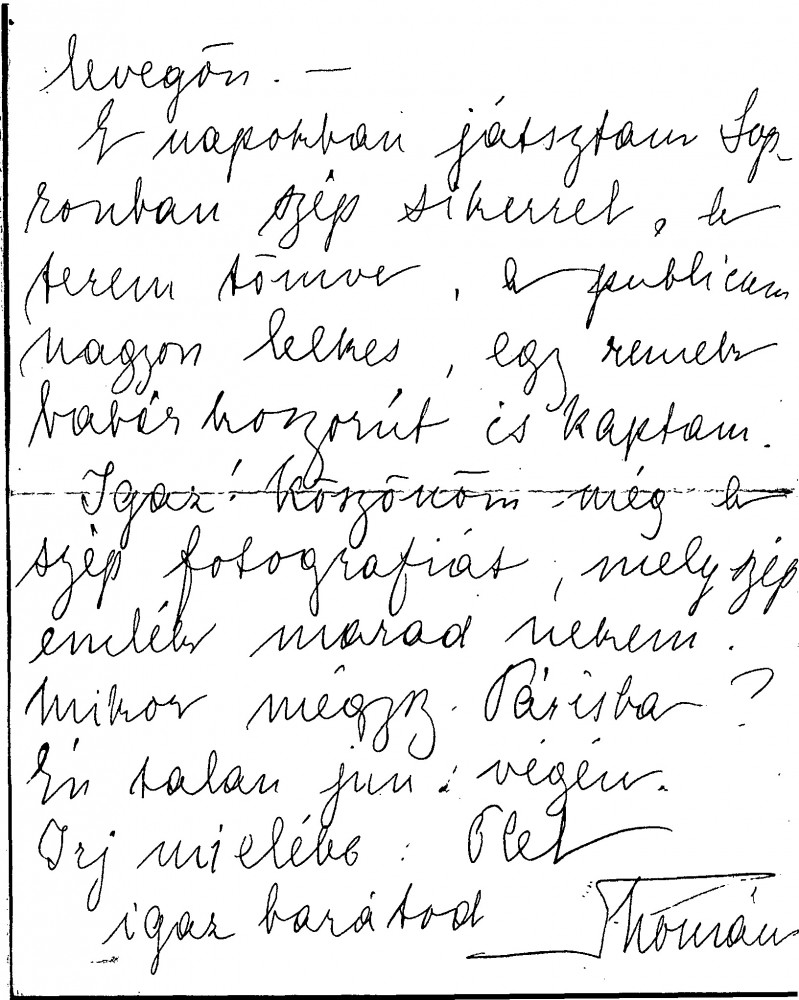 levegőn. —
E napokban játsztam Sop-
ronban szép sikerrel, a
terem tömve, a publicum
nagyon lelkes, egy remek
babér koszorút is kaptam.
Igaz! Köszönöm még a
szép fotografiát, mely szép
emlék marad nekem.
Mikor mégysz Párisba?
Én talan jun. végén.
Irj mielébb. Ölel
igaz barátod Thomán